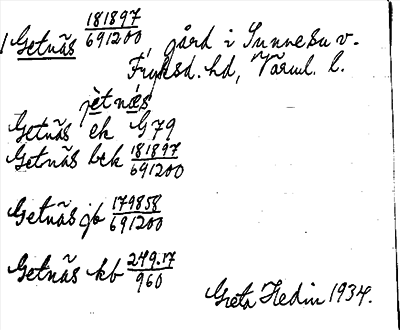 Getnäs 181897/691200 gård i Sunne su v.
Fryksd. hd, Värml. l.
jètnǝ́s
Getnäs ek G79
Getnäs bek 181897/691200
Getnäs jb 179858/691200
Getnäs kb 249.17/960
Greta Hedin 1934.